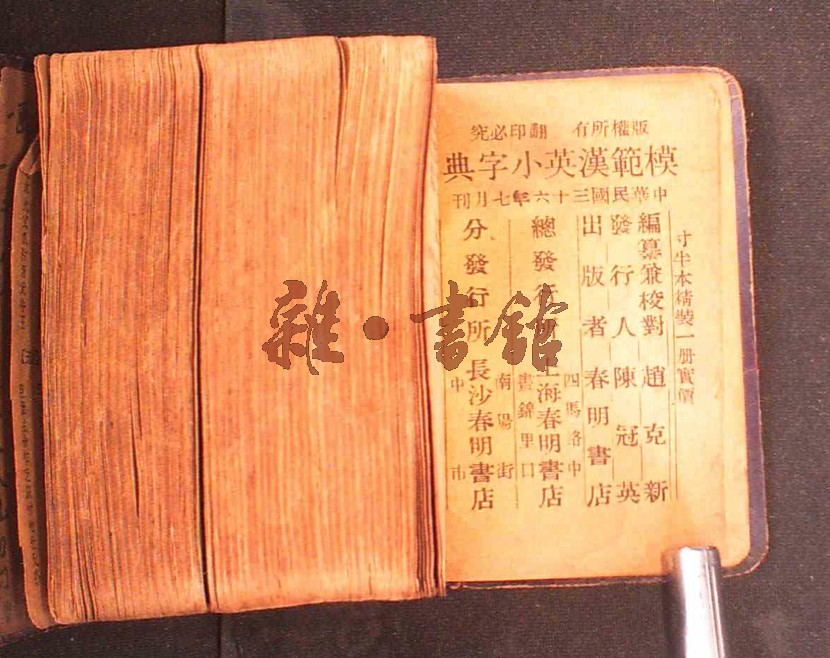 版權所有 翻印必究
模範漢英小字典
中華民國三十六年七月刊
寸半本精裝一册實價
編纂兼校對 趙克新
發行人 陳冠英
出版者 春明書店
四馬路中
總發行所 上海春明書店
晝錦里口
南陽街
分發行所 長沙春明書店
中市
雜·書館